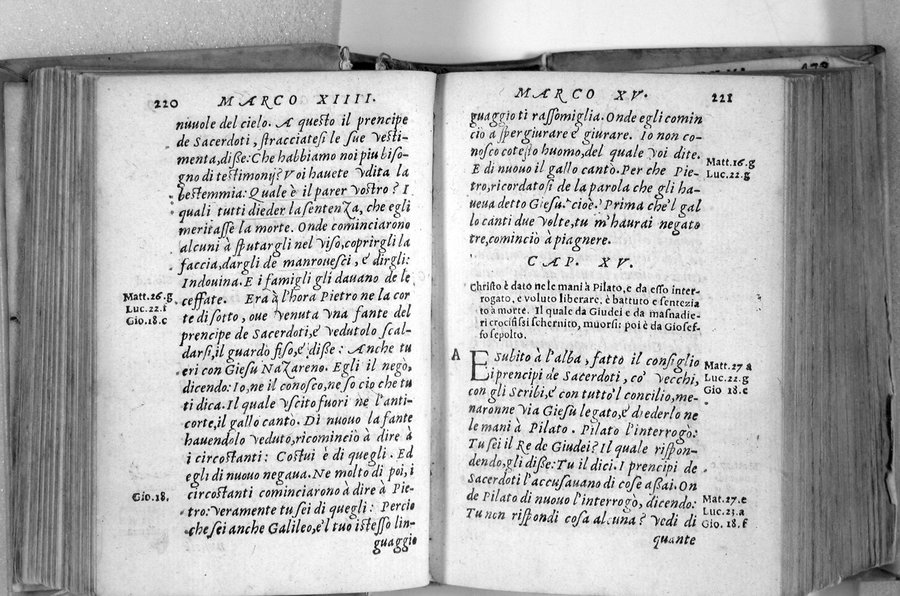 220 MARCO XIIII.
nuuole del cielo. A questo il prencipe
de Sacerdoti, stracciatesi le sue vesti-
menta, disse: Che habbiamo noi piu biso-
gno di testimonij? Voi hauete vdita la
bestemmia: Quale è il parer vostro? I
quali tutti dieder la sentenza, che egli
meritasse la morte. Onde cominciarono
alcuni à sputargli nel viso, coprirgli la
faccia, dargli de manrouesci, e dirgli:
Indouina. E i famigli gli dauano de le
ceffate. Era à l'hora Pietro ne la cor
te di sotto, oue venuta vna fante del
prencipe de Sacerdoti, e vedutolo scal-
darsi, il guardò fiso, e disse: Anche tu
eri con Giesu Nazareno. Egli il negò,
dicendo: Io, ne il conosco, ne so cio che tu
ti dica. Il quale vscito fuori ne l'anti-
corte, il gallo cantò. Di nuouo la fante
hauendolo veduto, ricominciò à dire à
i circostanti: Costui è di quegli. Ed
egli di nuouo negaua. Ne molto di poi, i
circostanti cominciarono à dire à Pie-
tro: Veramente tu sei di quegli: Percio
che sei anche Galileo, e'l tuo istesso lin-
guaggio
Matt.26.g
Luc.22.f
Gio.18.c
Gio.18.
MARCO XV. 221
guaggio ti rassomiglia. Onde egli comin
ciò a spergiurare e giurare. Io non co-
nosco cotesto huomo, del quale voi dite.
E di nuouo il gallo cantò. Per che Pie-
tro, ricordatosi de la parola che gli ha-
ueua detto Giesu, cioè, Prima che'l gal
lo canti due volte, tu m'haurai negato
tre, cominciò a piagnere.
CAP. XV.
Christo è dato ne le mani à Pilato, e da esso inter-
rogato, e voluto liberare, è battuto e sentezia
to à morte. Il quale da Giudei e da masnadie-
ri crocifissi schernito, muorsi: poi è da Giosef-
fo sepolto.
A E Subito à l'alba, fatto il consiglio
i prencipi de Sacerdoti, co' vecchi,
con gli Scribi, e con tutto'l concilio, me-
naronne via Giesu legato, e diederlo ne
le mani à Pilato. Pilato l'interrogò:
Tu sei il Re de Giudei? Il quale rispon-
dendo, gli disse: Tu il dici. I prencipi de
Sacerdoti l'accusauano di cose assai. On
de Pilato di nuouo l'interrogò, dicendo:
Tu non rispondi cosa alcuna? vedi di
quante
Matt.26.g
Luc.22.g
Matt.27 a
Luc.22.g
Gio 18.e
Matt.27.e
Luc.23.a
Gio.18.f